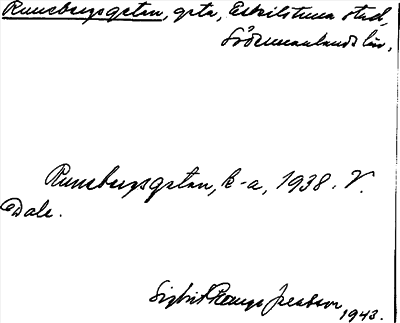 Runebergsgatan, gata, Eskilstuna stad,
Södermanlands län.
Runebergsgatan, k-a, 1938. V.
Dale.
Sigbrit 1943.